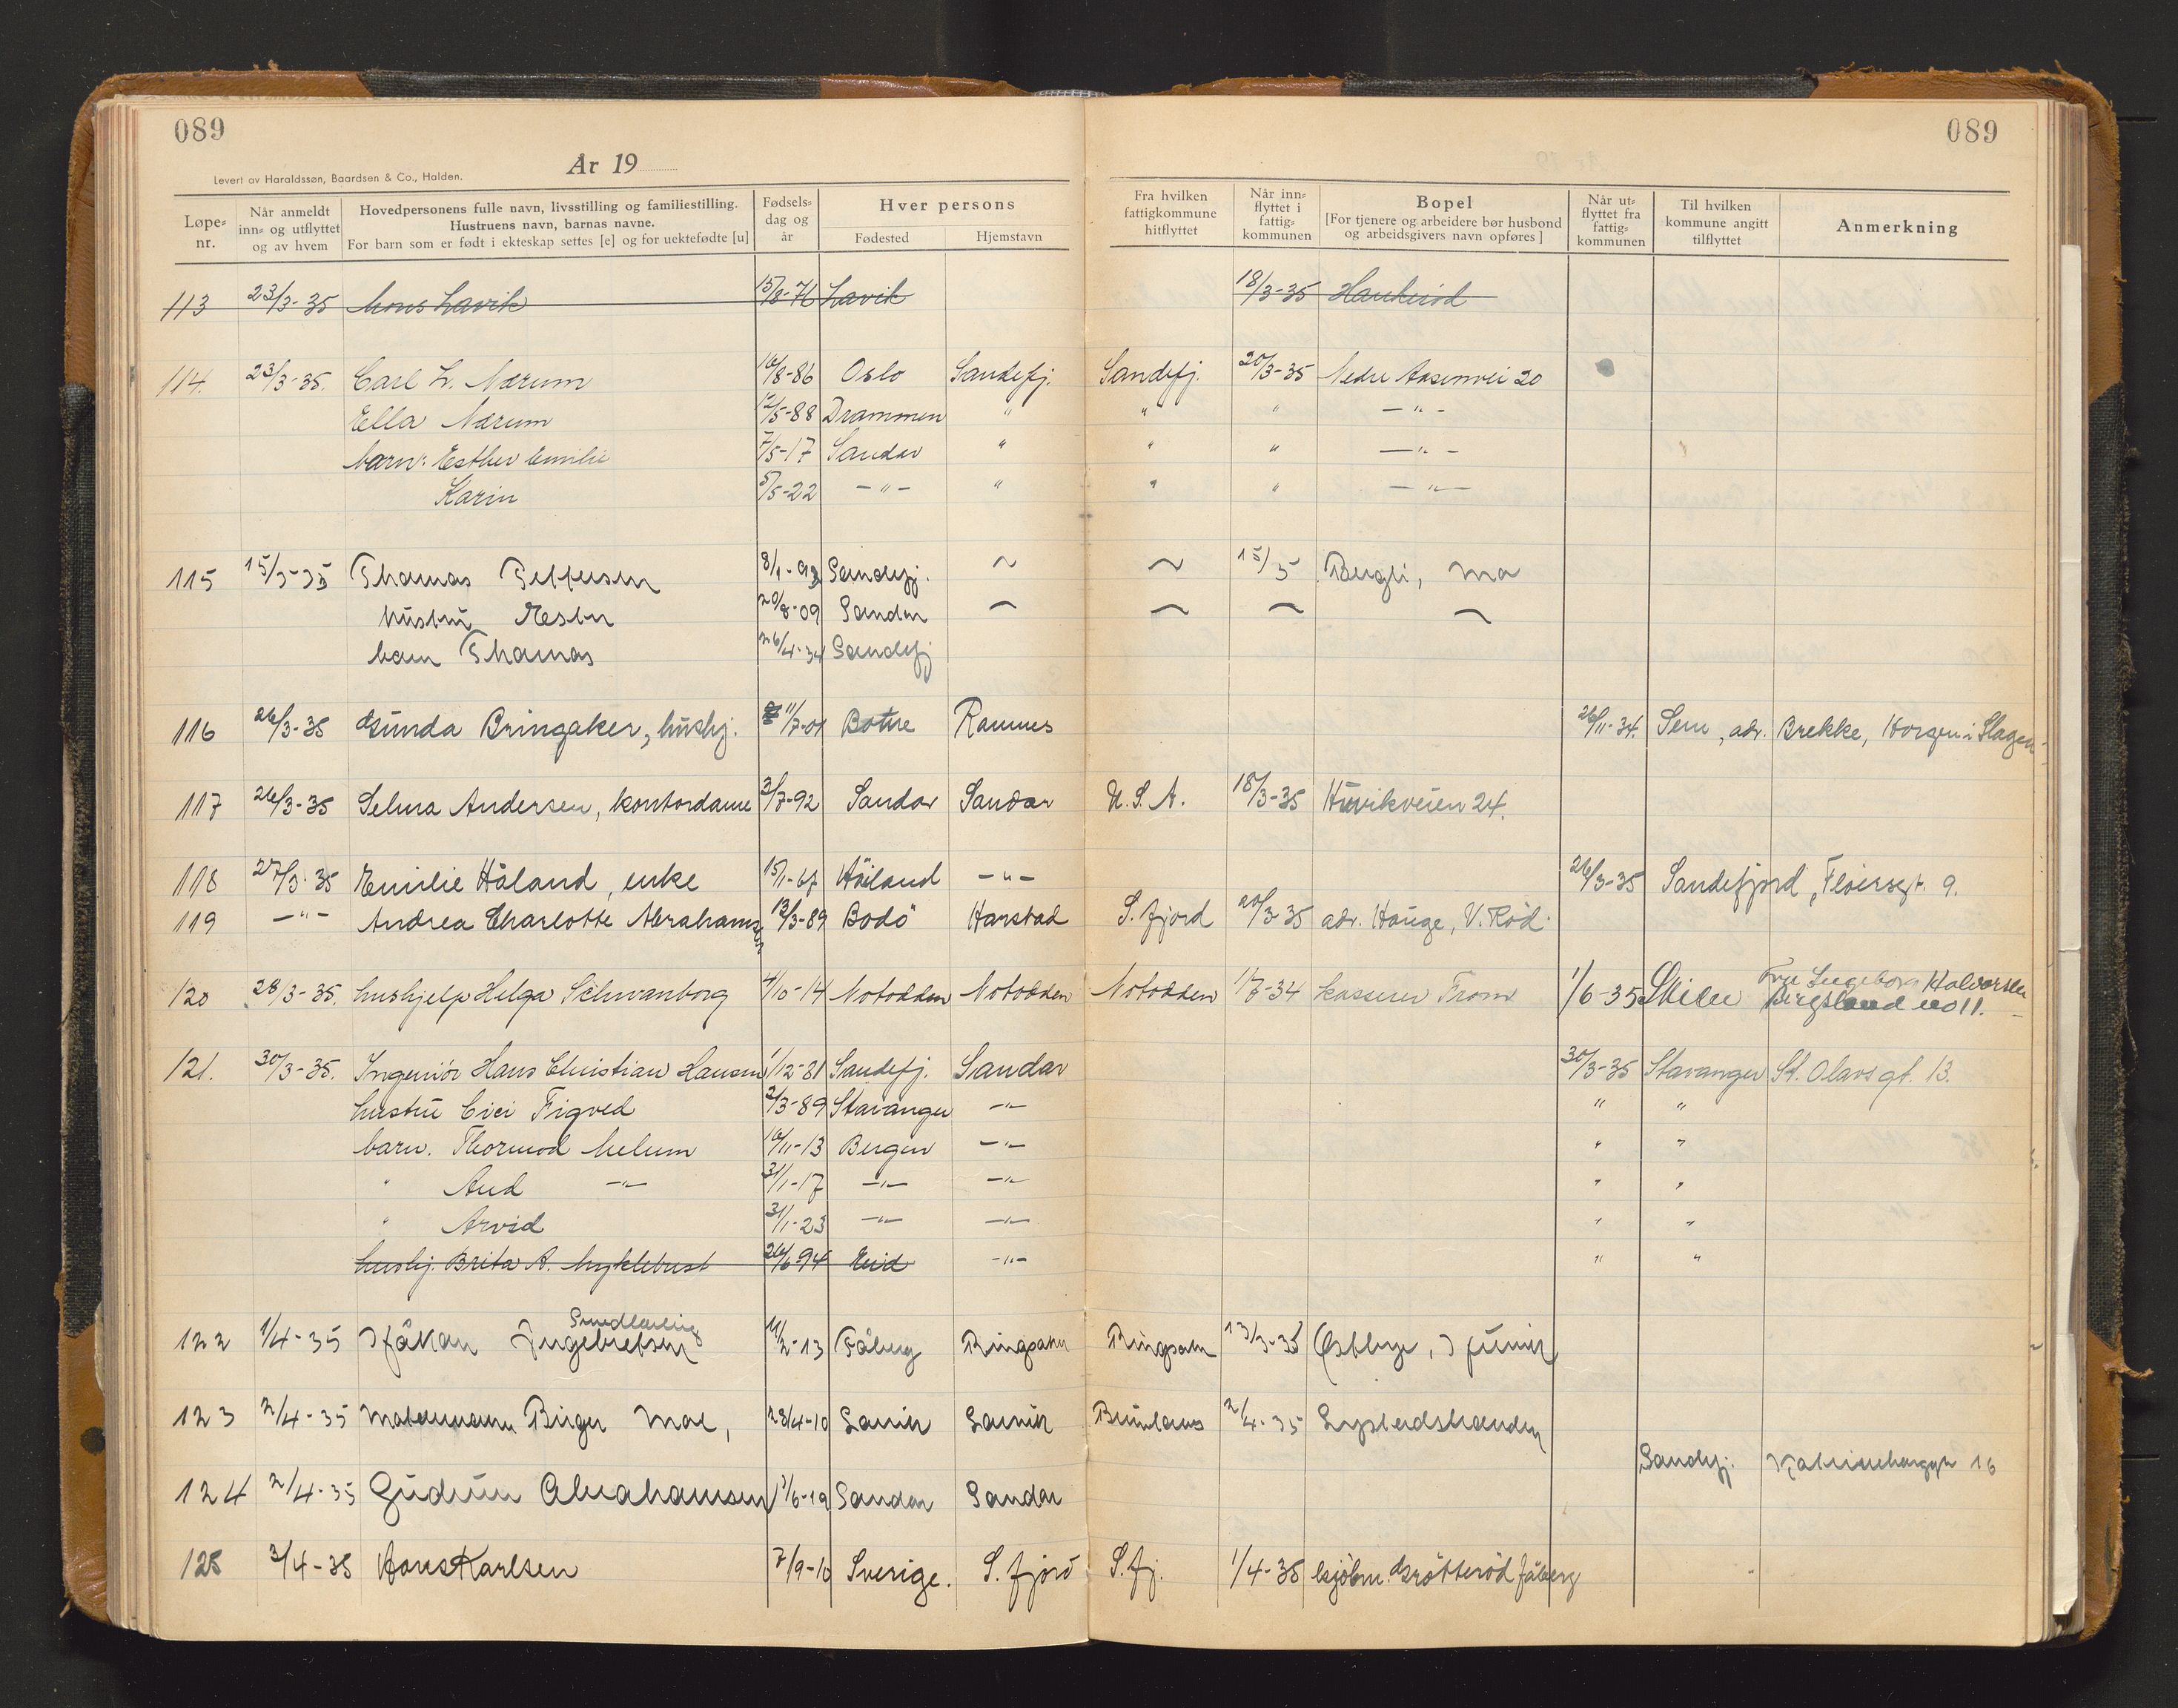 089
089
År 19
Levert av Haraldssøn, Baardsen & Co., Halden.
Løpe-nr. Når anmeldt inn- og utflyttet og av hvem Hovedpersonens fulle navn, livsstilling og familiestilling. Hustruens navn, barnas navne. For barn som er født i ekteskap settes [e] og for uektefødte [u] Fødsels-dag og år Hver persons Fødested Hjemstavn Fra hvilken fattigkommune hitflyttet Når inn-flyttet i fattig-kommunen Bopel [For tjenere og arbeidere bør husbond og arbeidsgivers navn opføres] Når ut-flyttet fra fattig-kommunen Til hvilken kommune angitt tilflyttet Anmerkning
113 23/3-35 Mons Lavik 15/8-76 Lavik 18/3-35 Haukerød
114. 23/3-35. Carl L. Nærum 16/8-86 Oslo Sandefj. Sandefj. 20/3-35 Nedre Aasenvei 20
Ella Nærum 12/5-88 Drammen " " " - " -
barn: Esther Emilie 7/5-17 Sandar " " " - " -
Karin 5/5-22 - " - " " " - " -
115 15/3-35 Thomas Pettersen 8/1-93 Sandefj. ~ ~ 15/3 Bugli, Mo
hustru Ester 20/8-09 Sandar ~ ~ ~ ~
barn Thomas 26/4-34 Sandefj
116 26/3-35 Gunda Bringaker, hushj. 11/7-01 Botne Ramnes 26/11-34. Sem, adr. Brekke, Horgen i Slagen
117 26/3-35 Selma Andersen, kontordame 3/7-92 Sandar Sandar U.S.A. 18/3-35 Huvikveien 24.
118 27/3-35 Emilie Håland, enke 15/1-67 Høiland - " - 26/3-35 Sandefjord, Fløiersgt. 9.
119 - " - Andrea Charlotte Abrahamsen 12/3-89 Bodø Harstad S.fjord 20/3-35 adr. Hauge, V. Rød.
120 28/3-35. hushjelp Helga Schwanborg 4/10-14 Notodden Notodden Notodden 1/8-34 kasserer From 1/6-35 Skien Fru Ingeborg Halvorsen
Bergsland no 11.
121. 30/3-35. Ingeniør Hans Christian Hansen 1/12-81 Sandefj. Sandar 30/3-35 Stavanger St. Olavsgt. 13.
hustru Cici Figved 2/3-89 Stavanger - " - " "
barn. Thormod Melum 16/11-13 Bergen - " - " "
" Aud - " - 31/1-17 - " - - " - " "
" Arvid 31/1-23 - " - - " - " "
hushj. Brita A. Myklebust 26/6-94 Eid - " - " "
122 1/4-35 Håkon Ingebretsen Smedlærling 11/2-13 Fåberg Ringsaker Ringsaker 13/3-35 Østbye,
123 2/4-35 Birger Moe, 28/4-10 Larvik Larvik Brunlanes 2/4-35 Lystadstranden
124 2/4-35 Gudrun Abrahamsen /6-19 Sandar Sandar Sandefj. 16
125 3/4-35 Hans Karlsen 7/9-10 Sverige. S.fjord S.fj. 1/4-35 Grøtterød